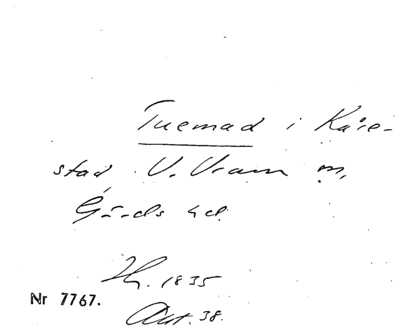 Tuemad i Kåre-
stad V. Vram m,
Gärds hd
H. 1835
Nr 7767.
Ant. 38.